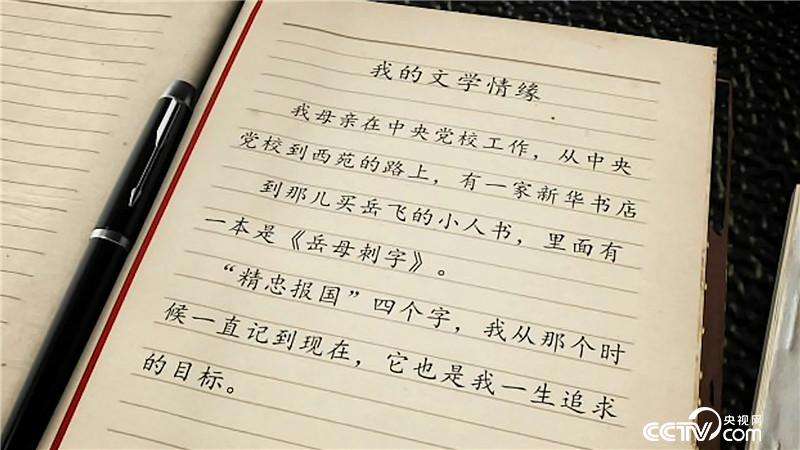 我的文学情缘
我母亲在中央党校工作，从中央
党校到西苑的路上，有一家新华书店
到那儿买岳飞的小人书，里面有
一本是《岳母刺字》。
“精忠报国”四个字，我从那个时
候一直记到现在，它也是我一生追求
的目标。
央视网
CCTV.com